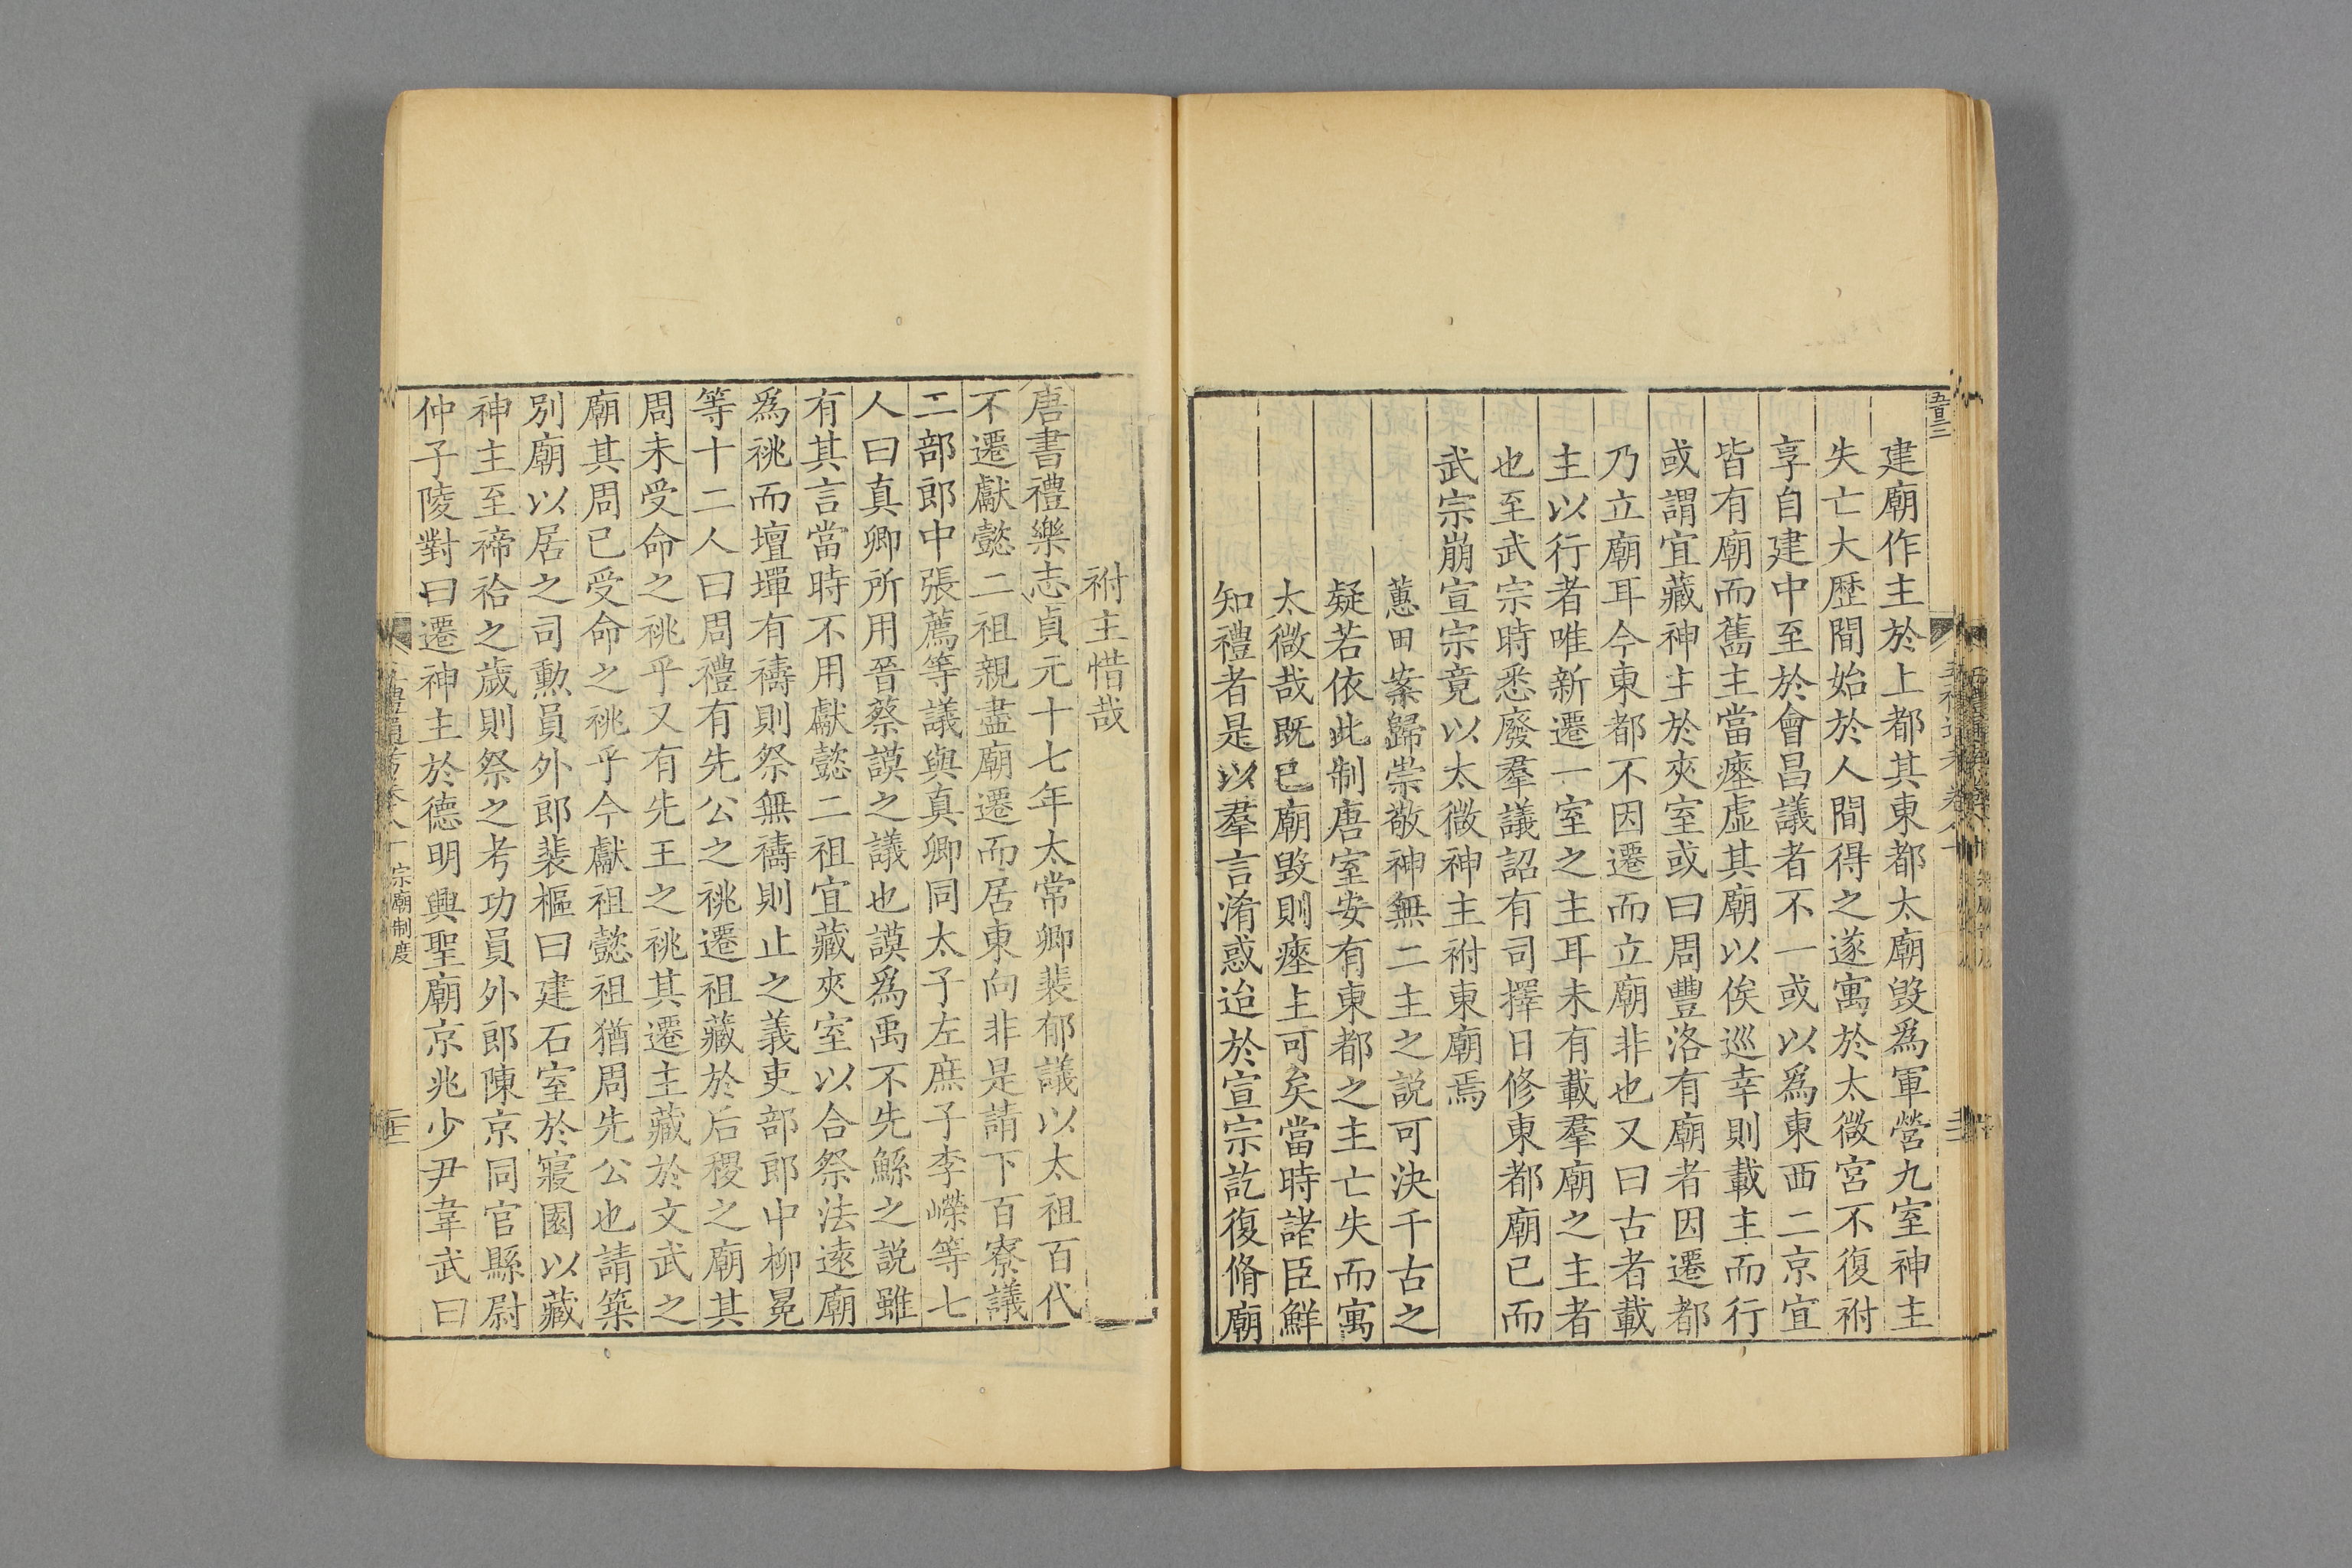 建廟作主於上都其東都太廟毀爲軍營九室神主
失亡大歴間始於人間得之遂寓於太微宮不復祔
享自建中至於會昌議者不一或以爲東西二京宜
皆有廟而舊主當瘞虛其廟以俟巡幸則載主而行
或謂宜藏神主於夾室或曰周豐洛有廟者因遷都
乃立廟耳今東都不因遷而立廟非也又曰古者載
主以行者唯新遷一室之主耳未有載羣廟之主者
也至武宗時悉廢羣議詔有司擇日修東都廟已而
武宗崩宣宗竟以太微神主祔東廟焉
蕙田案歸崇敬神無二主之説可決千古之
疑若依此制唐室安有東都之主亡失而寓
太微哉既已廟毀則瘞主可矣當時諸臣鮮
知禮者是以羣言淆惑迨於宣宗訖復脩廟
祔主惜哉
唐書禮樂志貞元十七年太常卿裴郁議以太祖百代
不遷獻懿二祖親盡廟遷而居東向非是請下百寮議
二部郎中張薦等議與真卿同太子左庶子李嶸等七
人曰真卿所用晉蔡謨之議也謨爲禹不先鯀之説雖
有其言當時不用獻懿二祖宜藏夾室以合祭法遠廟
爲祧而壇墠有禱則祭無禱則止之義吏部郎中柳冕
等十二人曰周禮有先公之祧遷祖藏於后稷之廟其
周未受命之祧乎又有先王之祧其遷主藏於文武之
廟其周已受命之祧乎今獻祖懿祖猶周先公也請築
別廟以居之司勲員外郎裴樞曰建石室於寢園以藏
神主至禘祫之歲則祭之考功員外郎陳京同官縣尉
仲子陵對曰遷神主於德明興聖廟京兆少尹韋武曰
宗廟制度